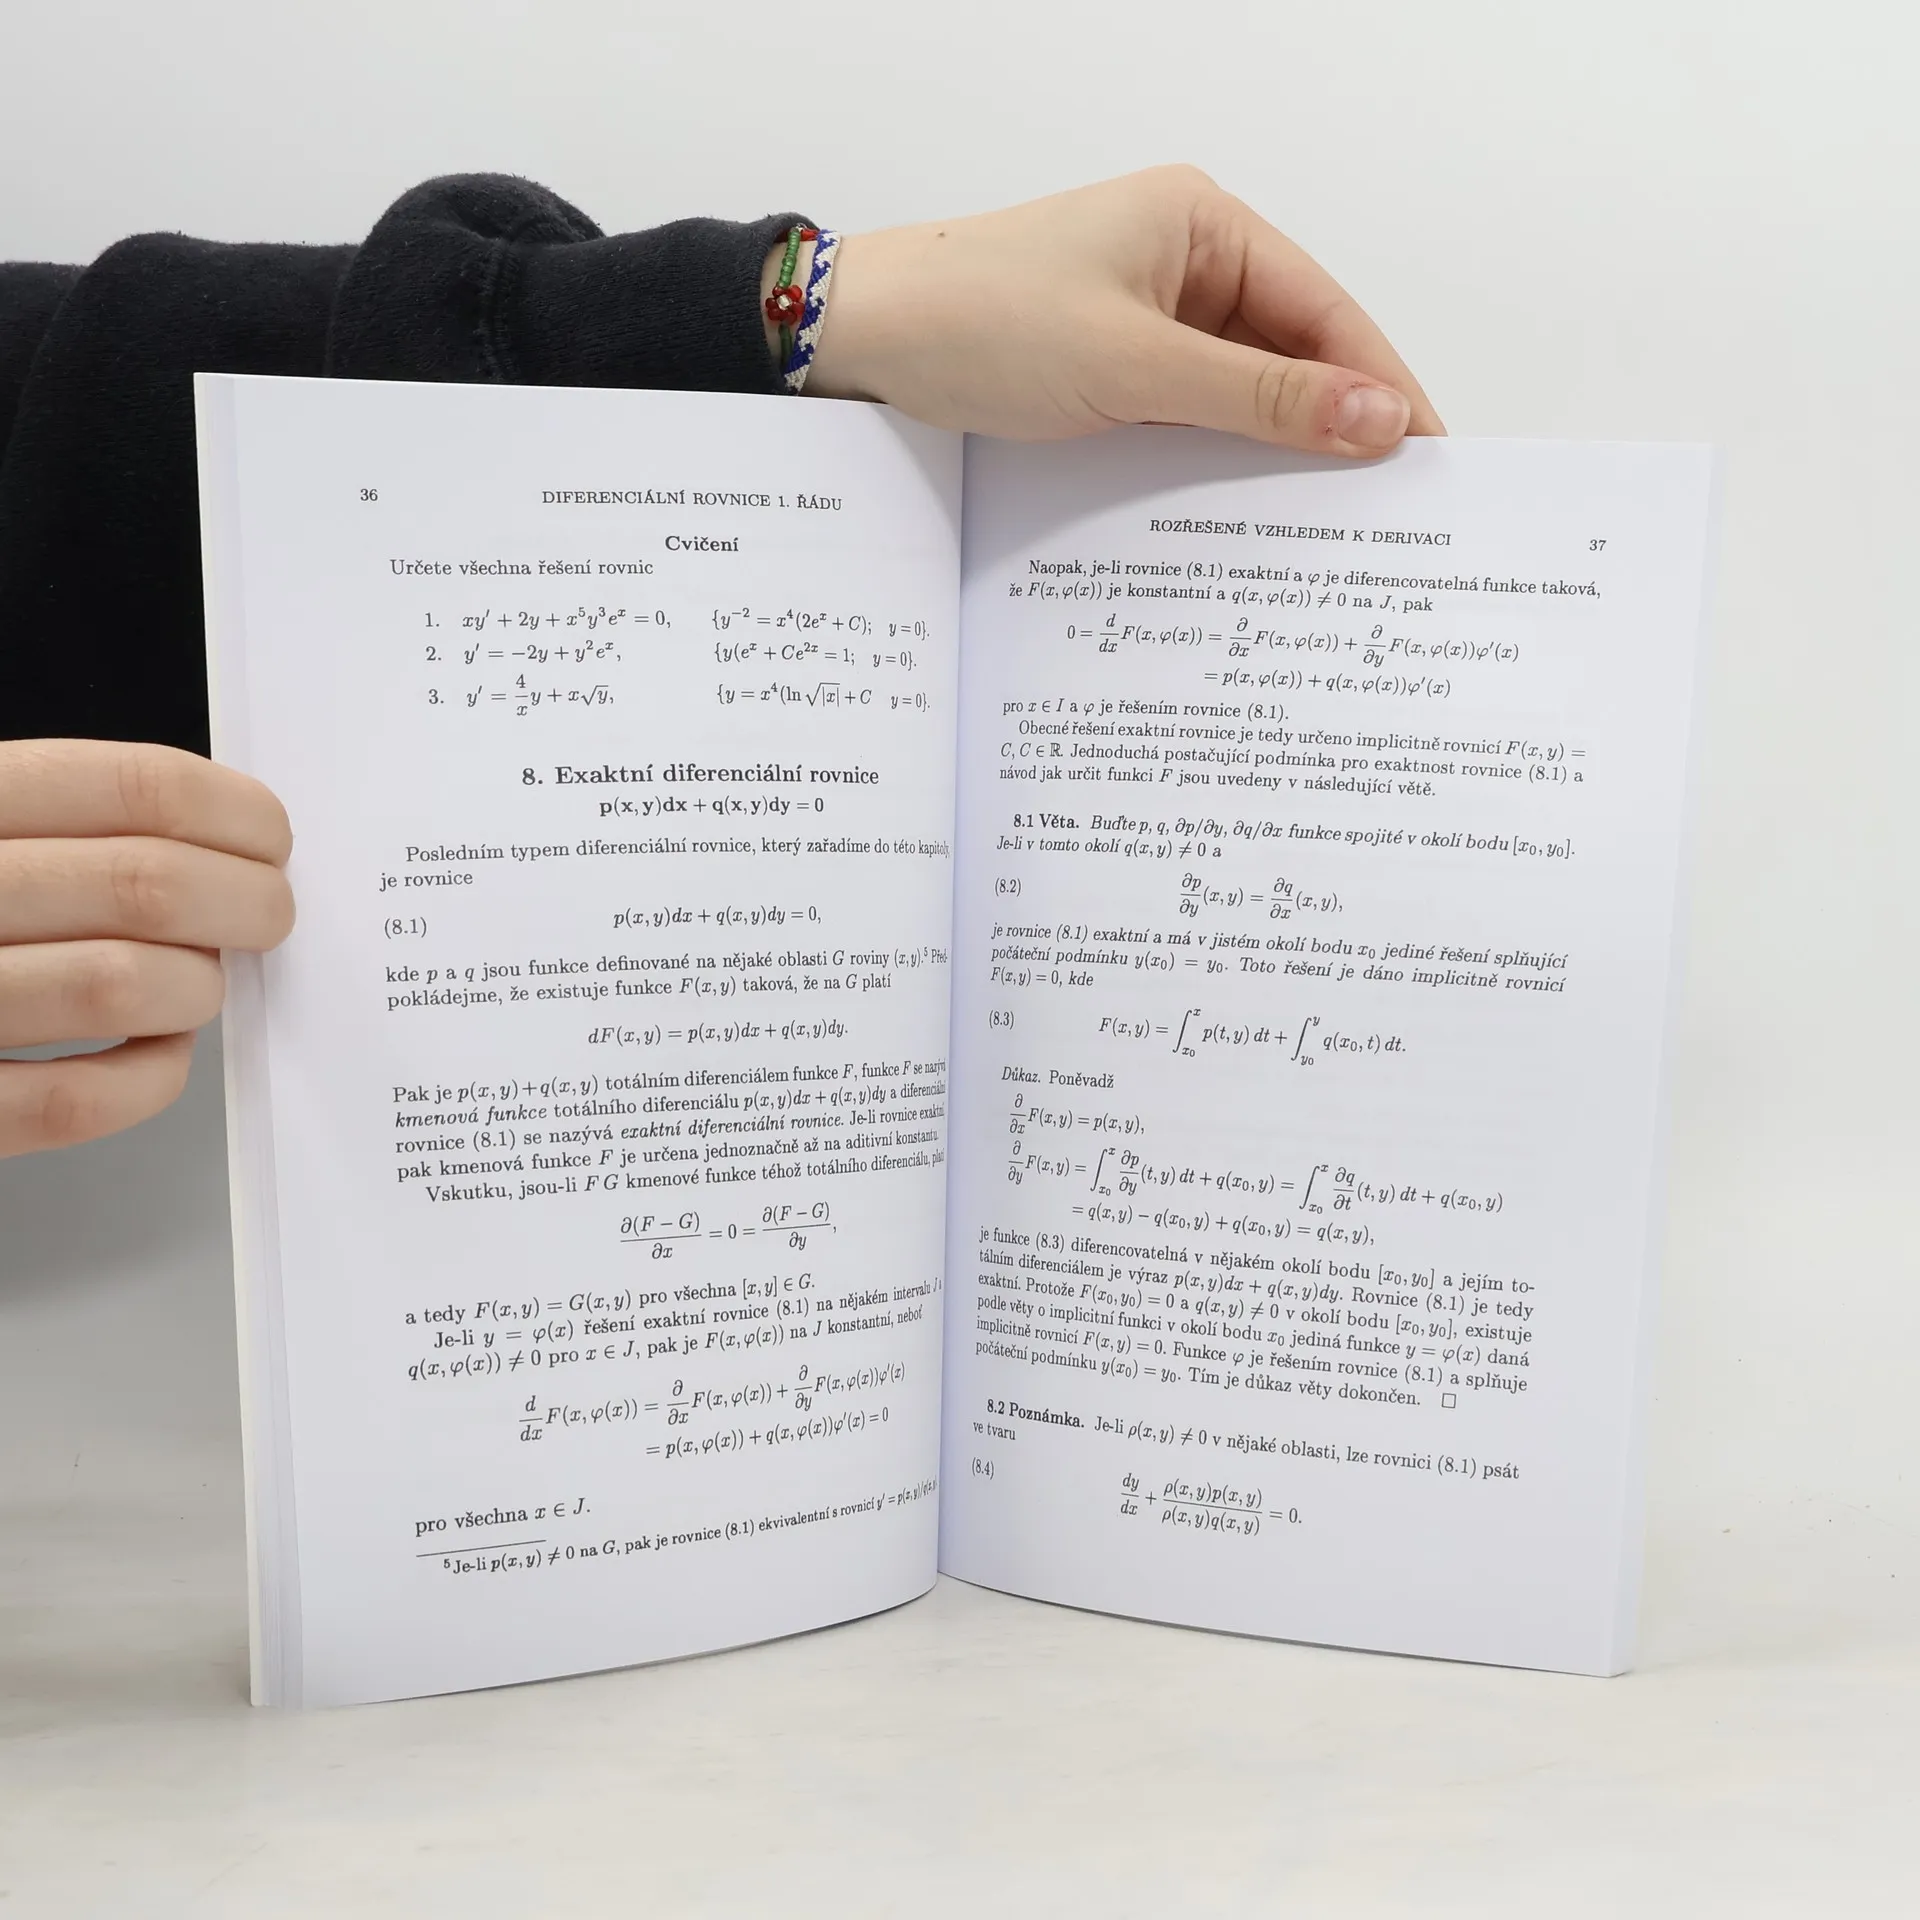 36
DIFERENCIÁLNÍ ROVNICE 1. ŘÁDU
Cvičení
Určete všechna řešení rovnic
1. xy′ + 2y + x⁵y³eˣ = 0, {y⁻² = x⁴(2eˣ + C); y = 0}.
2. y′ = −2y + y²eˣ, {y(eˣ + Ce²ˣ = 1; y = 0}.
3. y′ = 4/x y + x√y, {y = x⁴(ln √|x| + C y = 0}.
8. Exaktní diferenciální rovnice
p(x, y)dx + q(x, y)dy = 0
Posledním typem diferenciální rovnice, který zařadíme do této kapitoly,
je rovnice
(8.1) p(x, y)dx + q(x, y)dy = 0,
kde p a q jsou funkce definované na nějaké oblasti G roviny (x, y).⁵ Před-
pokládejme, že existuje funkce F(x, y) taková, že na G platí
dF(x, y) = p(x, y)dx + q(x, y)dy.
Pak je p(x, y)+q(x, y) totálním diferenciálem funkce F, funkce F se nazývá
kmenová funkce totálního diferenciálu p(x, y)dx + q(x, y)dy a diferenciální
rovnice (8.1) se nazývá exaktní diferenciální rovnice. Je-li rovnice exaktní,
pak kmenová funkce F je určena jednoznačně až na aditivní konstantu.
Vskutku, jsou-li F G kmenové funkce téhož totálního diferenciálu, platí
∂(F − G)/∂x = 0 = ∂(F − G)/∂y,
a tedy F(x, y) = G(x, y) pro všechna [x, y] ∈ G.
Je-li y = φ(x) řešení exaktní rovnice (8.1) na nějakém intervalu J a
q(x, φ(x)) ≠ 0 pro x ∈ J, pak je F(x, φ(x)) na J konstantní, neboť
d/dx F(x, φ(x)) = ∂/∂x F(x, φ(x)) + ∂/∂y F(x, φ(x))φ′(x)
= p(x, φ(x)) + q(x, φ(x))φ′(x) = 0
pro všechna x ∈ J.
⁵Je-li p(x, y) ≠ 0 na G, pak je rovnice (8.1) ekvivalentní s rovnicí y′ = p(x, y)/q(x, y)
ROZŘEŠENÉ VZHLEDEM K DERIVACI
37
Naopak, je-li rovnice (8.1) exaktní a φ je diferencovatelná funkce taková,
že F(x, φ(x)) je konstantní a q(x, φ(x)) ≠ 0 na J, pak
0 = d/dx F(x, φ(x)) = ∂/∂x F(x, φ(x)) + ∂/∂y F(x, φ(x))φ′(x)
= p(x, φ(x)) + q(x, φ(x))φ′(x)
pro x ∈ I a φ je řešením rovnice (8.1).
Obecné řešení exaktní rovnice je tedy určeno implicitně rovnicí F(x, y) =
C, C ∈ ℝ. Jednoduchá postačující podmínka pro exaktnost rovnice (8.1) a
návod jak určit funkci F jsou uvedeny v následující větě.
8.1 Věta. Buďte p, q, ∂p/∂y, ∂q/∂x funkce spojité v okolí bodu [x₀, y₀].
Je-li v tomto okolí q(x, y) ≠ 0 a
(8.2) ∂p/∂y (x, y) = ∂q/∂x (x, y),
je rovnice (8.1) exaktní a má v jistém okolí bodu x₀ jediné řešení splňující
počáteční podmínku y(x₀) = y₀. Toto řešení je dáno implicitně rovnicí
F(x, y) = 0, kde
(8.3) F(x, y) = ∫_{x₀}^{x} p(t, y) dt + ∫_{y₀}^{y} q(x₀, t) dt.
Důkaz. Poněvadž
∂/∂x F(x, y) = p(x, y),
∂/∂y F(x, y) = ∫_{x₀}^{x} ∂p/∂y (t, y) dt + q(x₀, y) = ∫_{x₀}^{x} ∂q/∂t (t, y) dt + q(x₀, y)
= q(x, y) − q(x₀, y) + q(x₀, y) = q(x, y),
je funkce (8.3) diferencovatelná v nějakém okolí bodu [x₀, y₀] a jejím to-
tálním diferenciálem je výraz p(x, y)dx + q(x, y)dy. Rovnice (8.1) je tedy
exaktní. Protože F(x₀, y₀) = 0 a q(x, y) ≠ 0 v okolí bodu [x₀, y₀], existuje
podle věty o implicitní funkci v okolí bodu x₀ jediná funkce y = φ(x) daná
implicitně rovnicí F(x, y) = 0. Funkce φ je řešením rovnice (8.1) a splňuje
počáteční podmínku y(x₀) = y₀. Tím je důkaz věty dokončen. □
8.2 Poznámka. Je-li ρ(x, y) ≠ 0 v nějaké oblasti, lze rovnici (8.1) psát
ve tvaru
(8.4) dy/dx + ρ(x, y)p(x, y)/ρ(x, y)q(x, y) = 0.